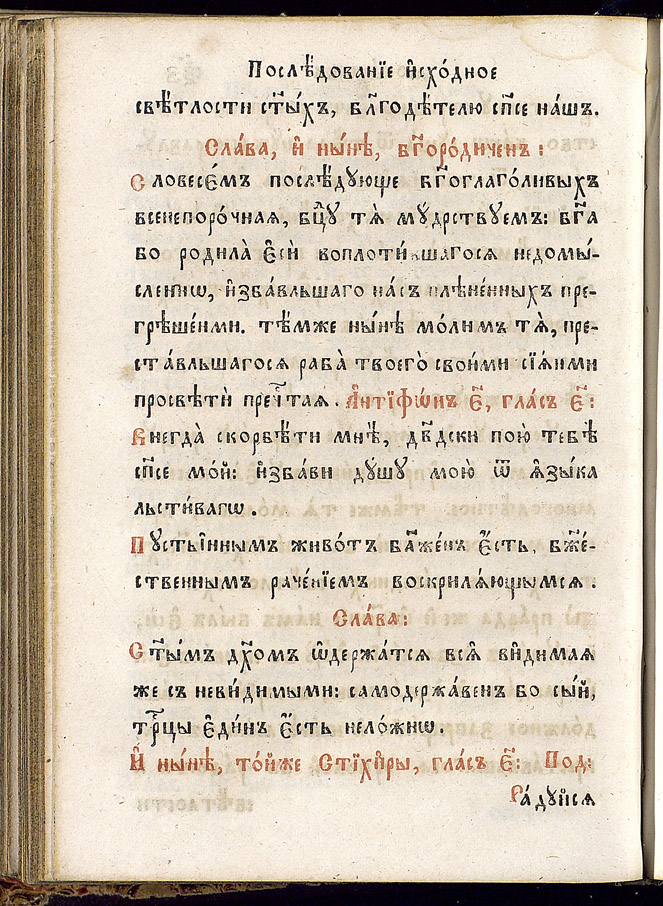 Послѣ́дованїе и҆схо́дное
свѣ́тлости ст҃ы́хъ, бл҃годѣ́телю сп҃се на́шъ.
Сла́ва, и҆ ны́нѣ, бг҃оро́диченъ :
Словесе́мъ послѣ́дующе бг҃оглаго́ливыхъ
всенепоро́чная, бц҃у тѧ̀ мꙋ́дрствꙋемъ: бг҃а
бо родила̀ є҆сѝ воплоти́вшагося недомы́-
сленнѡ, и҆зба́вльшаго на́съ плѣне́нныхъ пре-
грѣше́ньми. тѣ́мже ны́нѣ мо́лимъ тѧ̀, пре-
ста́вльшагося раба̀ твоего̀ свои́ми сїѧ́ньми
просвѣтѝ преч҇тая. А҆нтїфѡ́нъ є҃, гла́съ є҃:
Внегда̀ скорбѣ́ти мнѣ̀, дв҃дски пою̀ тебѣ̀
сп҃се мо́й: и҆зба́ви дꙋ́шꙋ мою̀ ѿ ѧ҆зы́ка
льсти́вагѡ.
Пꙋсты́ннымъ живо́тъ бл҃же́нъ є҆́сть, бж҃е́-
ственнымъ раче́нїемъ воскрилѧ́ющымсѧ.
Сла́ва:
Ст҃ы́мъ дх҃омъ ѡ҆держа́тсѧ всѧ̑ ви̑димаѧ
же съ неви́димыми: самодержа́венъ бо сы́й,
трⷪ҇цы є҆ди́нъ є҆́сть нело́жнѡ.
И҆ ны́нѣ, то́йже Стїхи̑ры, гла́съ є҃: Под:
Ра́дꙋйсѧ